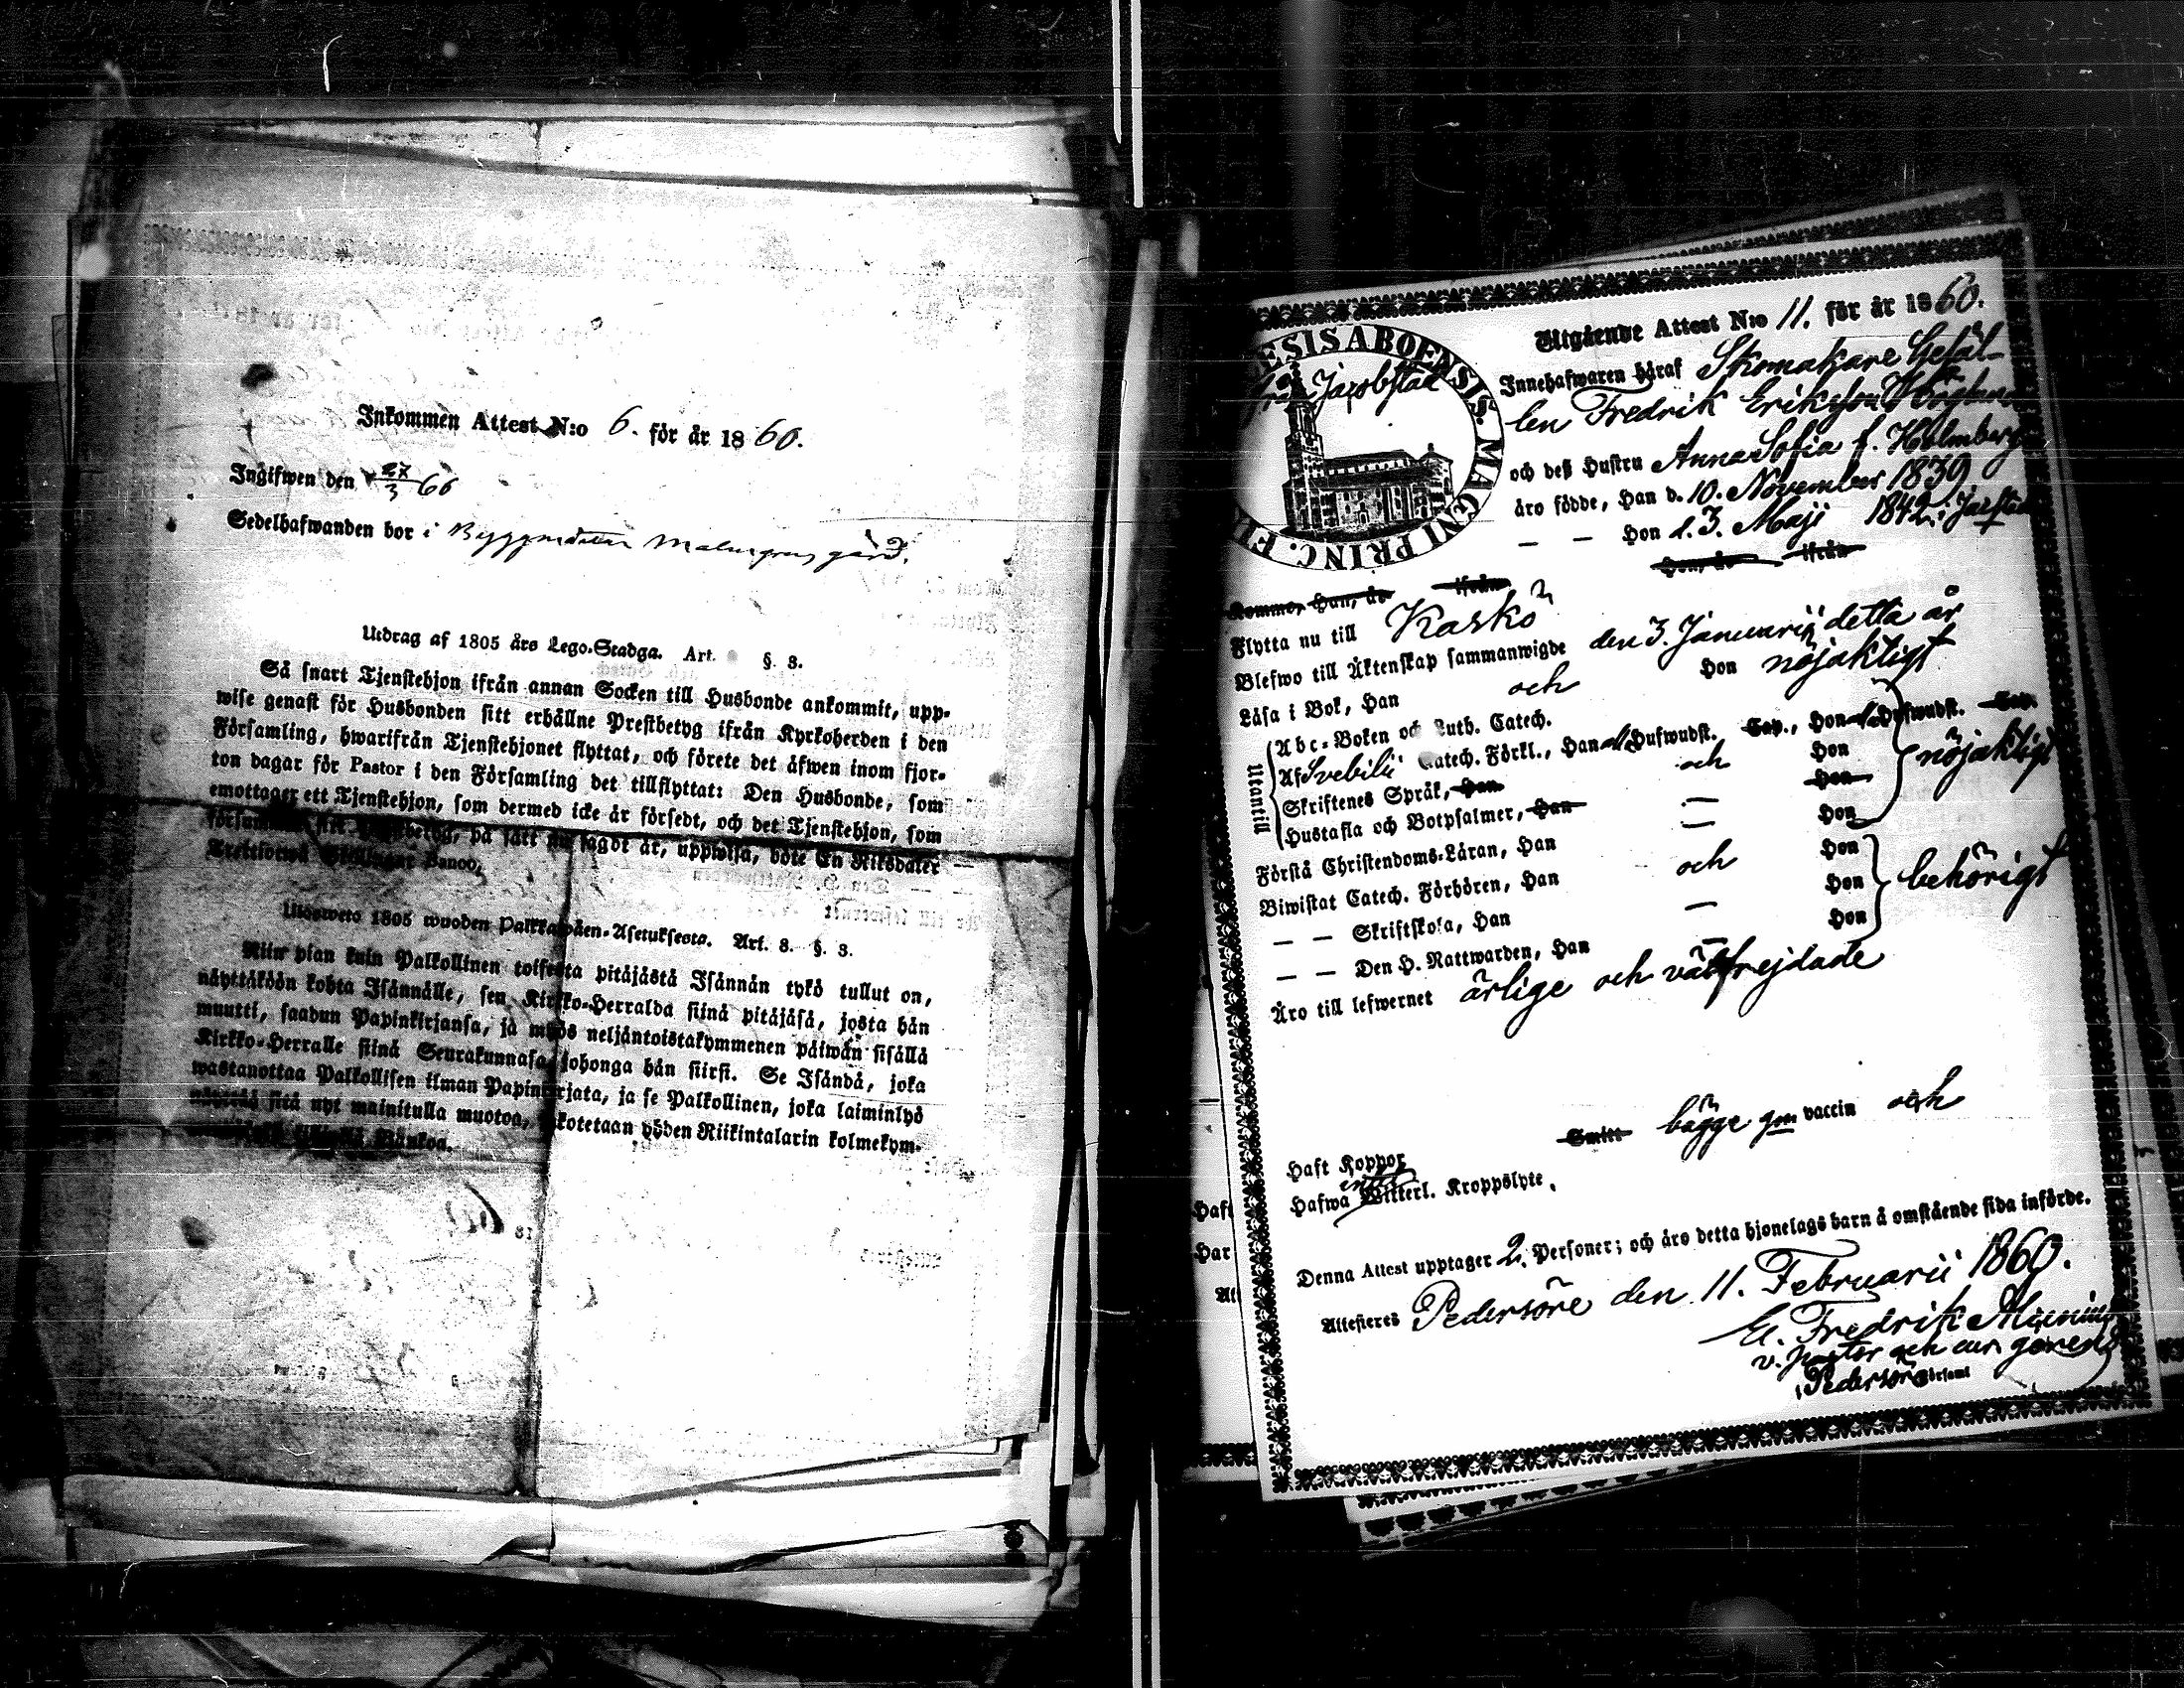 Inkommen Attest N:o 6. för år 1860.
Ingifwen den 27/3 60
Sedelhafwanden bor i Byggmästar Malmgrens gård.
Utdrag af 1805 års Lego-Stadga. Art. §. 3.
Så snart Tjenstehjon ifrån annan Socken till Husbonde ankommit, upp-
wise genast för Husbonden sitt erhållne Prestbetyg ifrån Kyrkoherden i den
Församling, hwarifrån Tjenstehjonet flyttat, och förete det äfwen inom fjor-
ton dagar för Pastor i den Församling det tillflyttat: Den Husbonde, som
emottager ett Tjenstehjon, som dermed icke är försedt, och det Tjenstehjon, som
sitt på sätt nu sagdt är, uppwisa, böte En Riksdaler
Banco.
Ulosweto 1805 wuoden Palkkawäen-Asetuksesta. Art. 8. §. 3.
Niin pian kuin Palkollinen toisesta pitäjästä Isännän tykö tullut on,
näyttäköön kohta Isännälle, sen Kirkko-Herralda siinä pitäjäsä, josta hän
muutti, saadun Papinkirjansa, ja myös neljäntoistakymmenen päiwän sisällä
Kirkko-Herralle siinä Seurakunnasa johonga hän siirsi. Se Isändä, joka
wastanottaa Palkollisen ilman Papinkirjata, ja se Palkollinen, joka laiminlyö
näyttää sitä nyt mainitulla muotoa, sakotetaan yhden Riikintalarin kolmekym-
Bankoa.
Utgående Attest N:o 11. för år 1860.
ESIS ABOENSIS. MAGNI PRINC. FI
från Jacobstad
Innehafwaren häraf Skomakare Gesäl-
len Fredrik Eriksson
och deß Hustru Anna Sofia f. Holmberg
äro födde, Han d. 10. November 1839
— — Hon d. 3. Maji 1842. i
Kommo, Han, år ifrån Hon, år ifrån
Flytta nu till Kaskö
Blefwo till Äktenskap sammanwigde den 3. Januarii detta år
Läsa i Bok, Han och Hon nöjaktigt
Utantill
Abc-Boken och Luth. Catech.
Af Svebilii Catech. Förkl., Han Hufwudst. Cap., Hon Hufwudst. Cap.
Skriftenes Språk, Han och Hon nöjaktigt
Hustafla och Botpsalmer, Han — Hon
Förstå Christendoms-Läran, Han — Hon
Biwistat Catech. Förhören, Han och Hon
— — Skriftskola, Han Hon behörigt
— — Den H. Nattwarden, Han — Hon
Äro till lefwernet ärlige och välfrejdade
Haft Koppor Smitt bägge gm vaccin och
Hafwa intet Witterl. Kroppslyte.
Denna Attest upptager 2. Personer; och äro detta hjonelags barn å omstående sida införde.
Attesteres Pedersöre den 11. Februarii 1860.
Fredrik
v. pastor och
i Pedersöre Församl